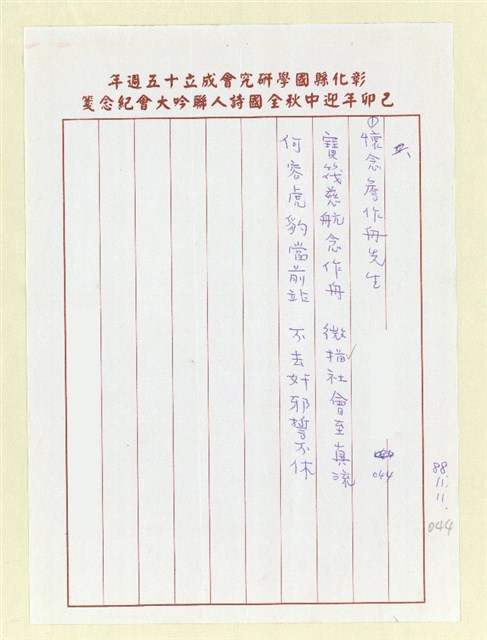 彰化縣國學硏究會成立十五週年
己卯年迎中秋全國詩人聯吟大會紀念箋
①懷念詹作舟先生
寶筏慈航念作舟 微描社會至真流
何容虎豹當前站 不去奸邪誓不休
044
88.11.11.
044